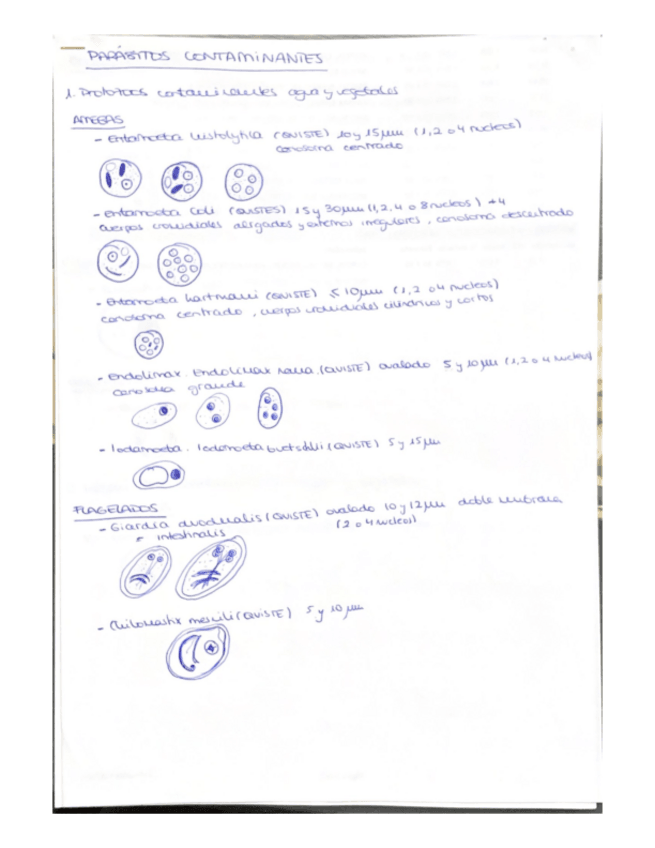 PARÁSITOS CONTAMINANTES
1. Protozoos contaminantes agua y vegetales
AMEBAS
- Entamoeba histolytica (QUISTE) 10 y 15 µm (1, 2 o 4 nucleos)
cariosoma centrado
- Entamoeba coli (QUISTES) 15 y 30 µm (1, 2, 4 o 8 nucleos) +4
cuerpos croidiales alargados y extremos irregulares, cariosoma descentrado
- Entamoeba hartmanni (QUISTE) < 10 µm (1, 2 o 4 nucleos)
cariosoma centrado, cuerpos croidiales cilindricos y cortos
- Endolimax. Endolimax nana. (QUISTE) ovalado 5 y 10 µm (1, 2 o 4 nucleos)
cariosoma grande
- Iodamoeba. Iodamoeba buetschlii (QUISTE) 5 y 15 µm
FLAGELADOS
- Giardia duodenalis (QUISTE) ovalado 10 y 12 µm doble membrana
intestinalis (2 o 4 nucleos)
- Chilomastix mesnili (QUISTE) 5 y 10 µm